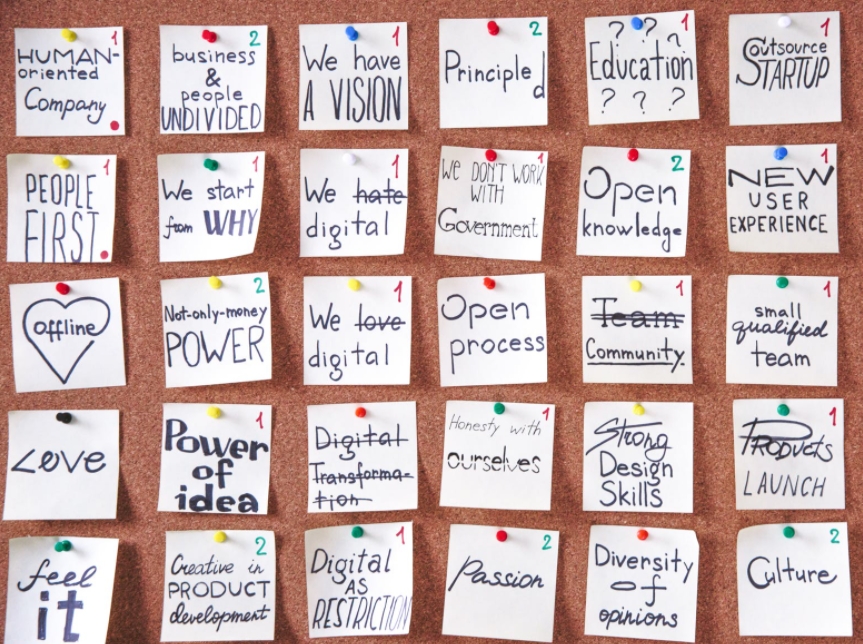 1
HUMAN-
oriented
Company
2
business
&
people
UNDIVIDED
1
We have
A VISION
2
Principle
d
1
? ? ?
Education
? ? ?
1
Outsource
STARTUP
1
PEOPLE
FIRST
1
We start
from WHY
1
We hate
digital
1
WE DON'T WORK
WITH
Government
2
Open
knowledge
1
NEW
USER
EXPERIENCE
offline
2
Not-only-money
POWER
1
We love
digital
Open
process
1
Team
Community
1
small
qualified
team
Love
1
Power
of
idea
Digital
Transforma-
tion
1
Honesty with
ourselves
Strong
Design
Skills
1
PRODUCTS
LAUNCH
feel
it
2
Creative in
PRODUCT
development
1
Digital
AS
RESTRICTION
2
Passion
Diversity
of
opinions
2
Culture